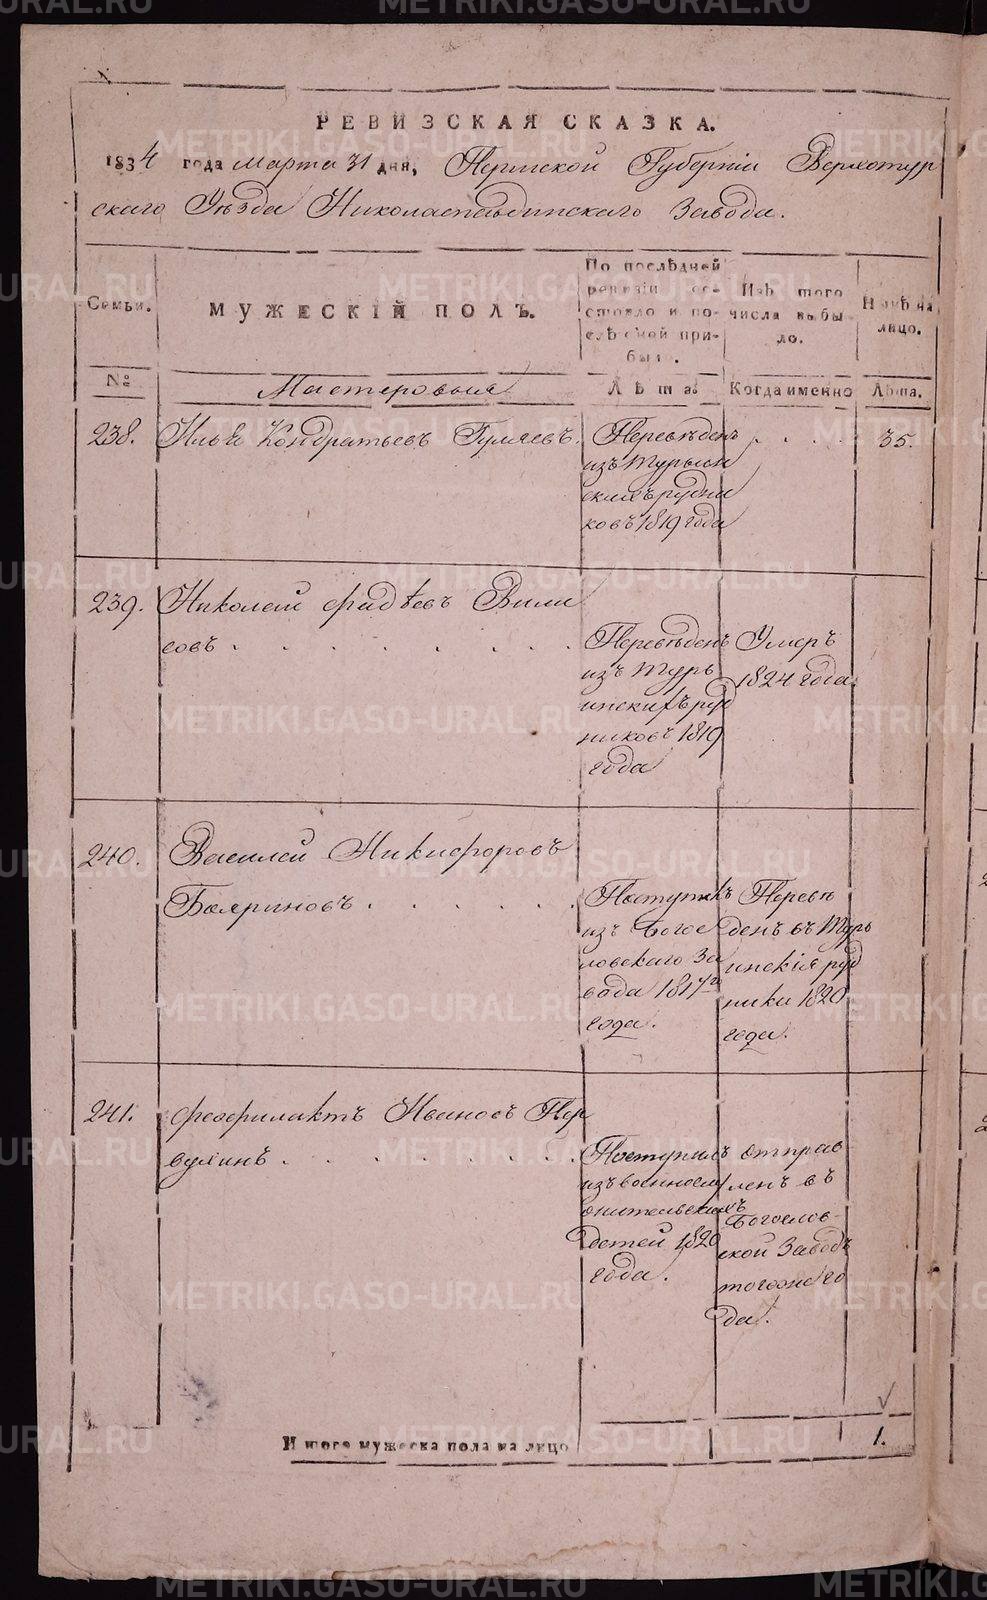 РЕВИЗСКАЯ СКАЗКА.
1834 года Марта 31 дня, Пермской Губерніи Верхотур
скаго Уѣзда Николаепавдинскаго Завода.
Семьи.
МУЖЕСКІЙ ПОЛЪ.
По послѣдней ревизіи состояло и послѣ оной прибыло.
Изъ того числа выбыло.
Нынѣ на лицо.
№
Мастеровыя
Лѣта.
Когда именно
Лѣта.
238.
Илья Кондратьевъ Гуляевъ.
Переведенъ
изъ Турьин
скихъ рудни
ковъ 1819 года
35.
239.
Николай Фадѣевъ Вили
совъ
Переведенъ
изъ Турь
инскихъ руд
никовъ 1819
года
Умеръ
1824 года.
240.
Василей Никифоровъ
Бояриновъ
Поступилъ
изъ Богос
ловскаго За
вода 1817го
года.
Переве
денъ въ Турь
инскія руд
ники 1820
года.
241.
Феофилактъ Ивановъ Пер
вулинъ
Поступилъ
изъ военносир
детей 1820
года.
отправ
ленъ въ
Богослов-
ской Заводъ
тогоже го
да.
Итого мужеска пола на лицо
1.
METRIKI.GASO-URAL.RU